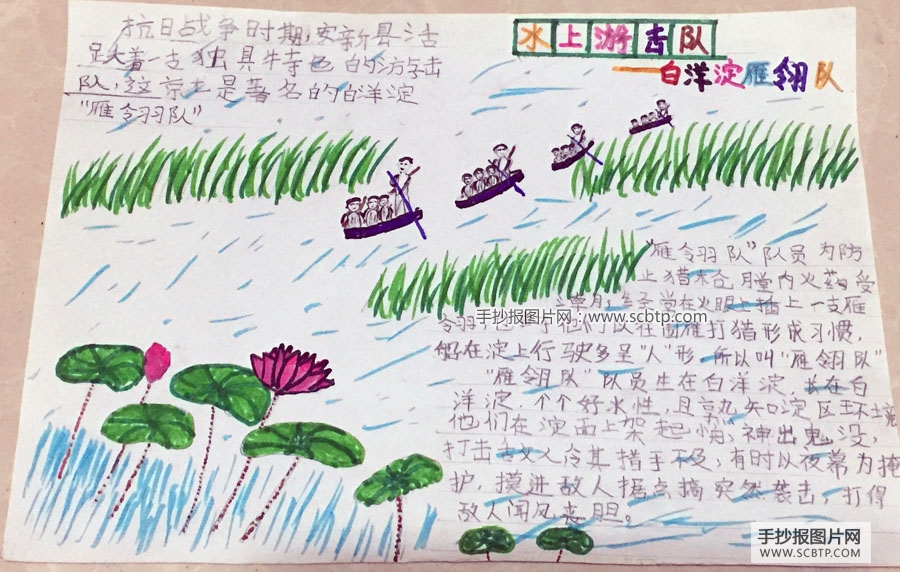 抗日战争时期,安新县活
跃着一支独具特色的游击
队,这就是著名的白洋淀
"雁翎队"
水上游击队
——白洋淀雁翎队
"雁翎队"队员为防
止猎枪膛内火药受
潮湿,经常在火眼上插上一支雁
翎
手抄报图片网:www.scbtp.com
队在围雁打猎形成习惯,
船在淀上行驶多呈"人"形,所以叫"雁翎队"
"雁翎队"队员生在白洋淀,长在白
洋淀,个个好水性,且熟知淀区环境
他们在淀面上架起快,神出鬼没,
打击敌人令其措手不及,有时以夜幕为掩
护,摸进敌人据点搞突然袭击,打得
敌人闻风丧胆。
手抄报图片网
WWW.SCBTP.COM